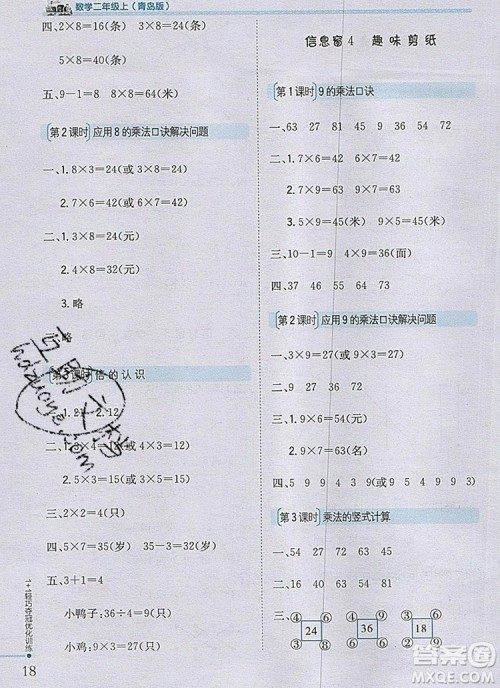 数学二年级上(青岛版)
四、2×8=16(条) 3×8=24(条)
5×8=40(条)
五、9-1=8 8×8=64(米)
第2课时 应用8的乘法口诀解决问题
一、1.8×3=24(或3×8=24)
2.7×6=42(或6×7=42)
二、1.3×8=24(元)
2.4×8=32(元)
3.略
三、略
第3课时 倍的认识
一、1.21 2.12
二、1.3×4=12(或4×3=12)
2.7×5=35(或5×7=35)
三、4×2=8(只)
四、5×7=35(岁) 35-7=28(岁)
五、3+1=4
小鸭子:36÷4=9(只)
小鸡:9×3=27(只)
1+1轻巧夺冠优化训练
18
信息窗4 趣味剪纸
第1课时 9的乘法口诀
一、63 27 81 45 9 36 54 72
二、1.7×6=42(或6×7=42)
2.9×6=54(或6×9=54)
3.5×9=45(米) 9×5=45(米)
三、10-1=9 4×9=36(面)
四、45 54 55 64 73
第2课时 应用9的乘法口诀解决问题
一、3×9=27(元)
二、9×6=54(或6×9=54)
三、1.3×9=27(或9×3=27)
2.5×9=45(或9×5=45)
四、5 9 9 9 4 5 9 9 3
第3课时 乘法的竖式计算
一、54 27 45 32
二、36 16 63 18 72
三、
24 36 18
答案圈
MXQE.COM